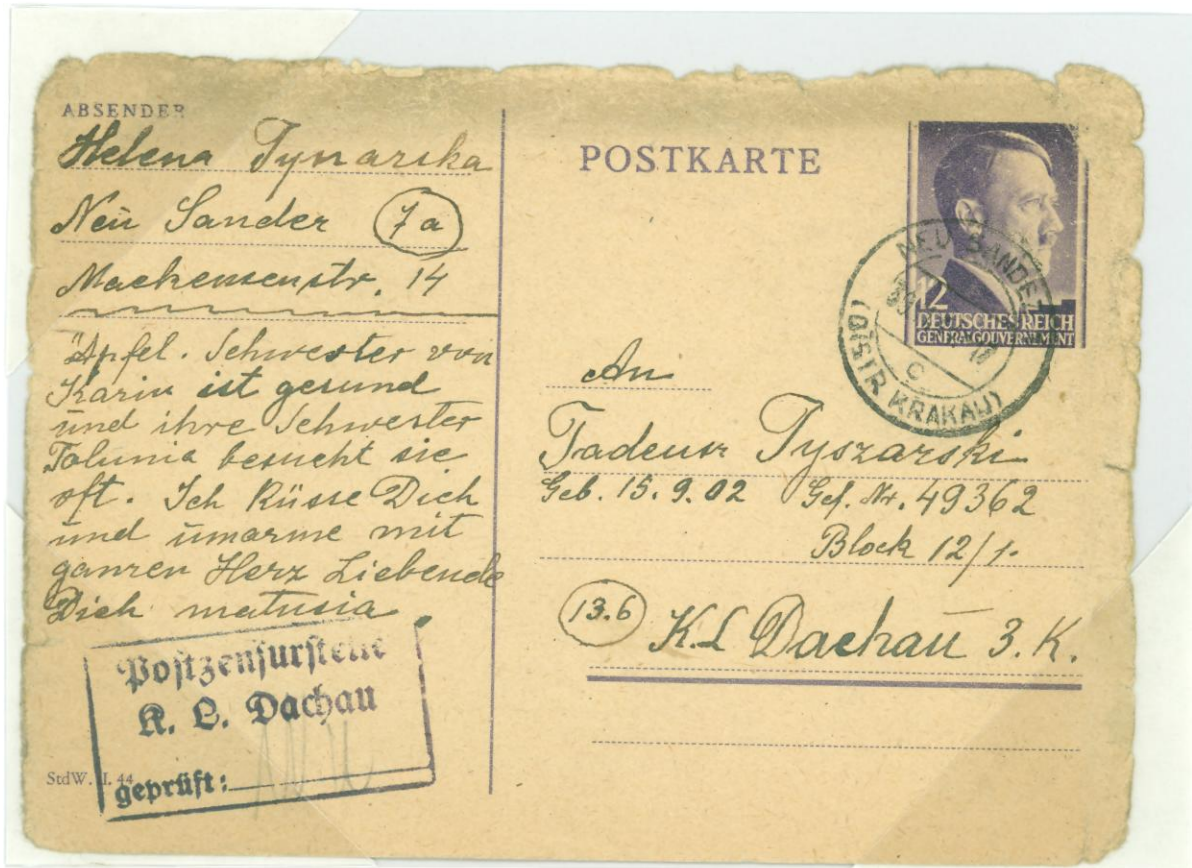 ABSENDER
Helena Tynarska
Neu Sander 7a
Mackensenstr. 14
Äpfel. Schwester von
Karin ist gesund
und ihre Schwester
Tolunia besucht sie
oft. Ich Küsse Dich
und umarme mit
ganzen Herz Liebende
Dich matusia
Postzensurstelle
K. L. Dachau
geprüft:
StdW. I. 44
POSTKARTE
12
DEUTSCHES REICH
GENERALGOUVERNEMENT
NEU SANDEZ
c
(DISTR KRAKAU)
An
Tadeusz Tyszarski
Geb. 15.9.02 Gef. Nr. 49362
Block 12/1.
13.b K.L Dachau 3.K.